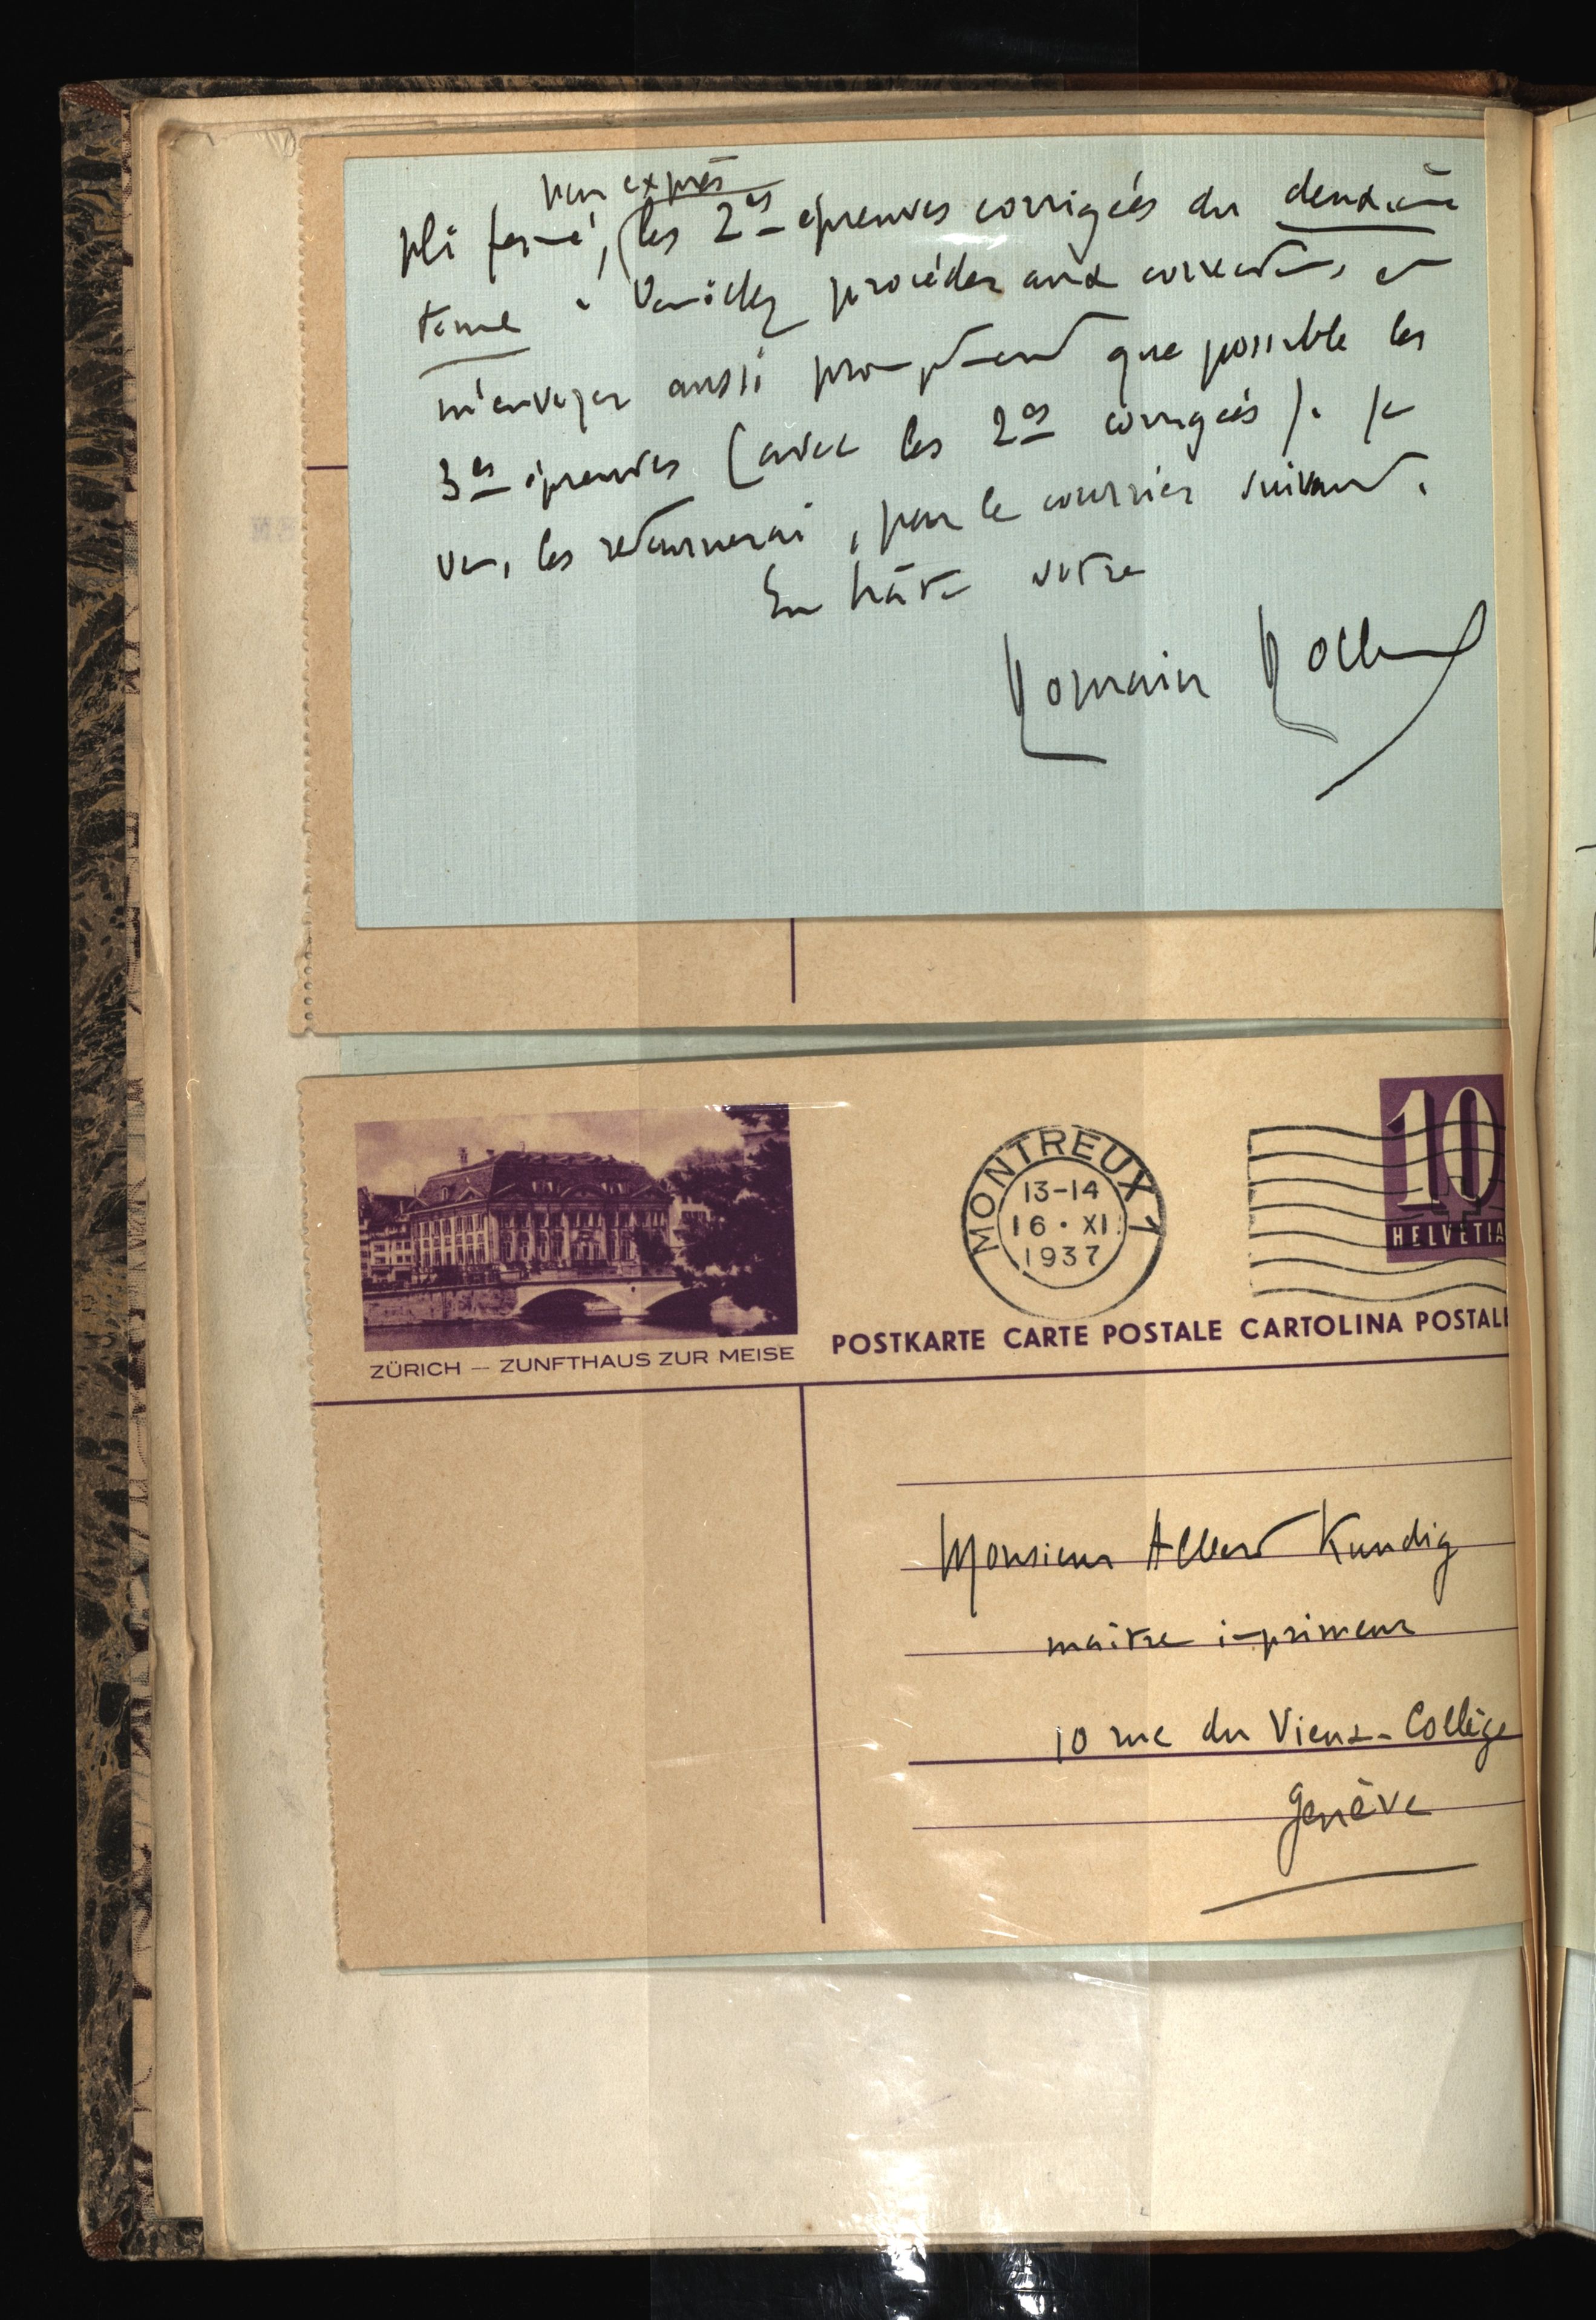 par exprès
pli fermé, les 2es épreuves corrigées du deuxième
tome. Veuillez procéder aux corrections et
m'envoyer aussi promptement que possible les
3es épreuves (avec les 2es corrigées). Je
vous les retournerai, par le courrier suivant.
En hâte votre
Romain Rolland
ZÜRICH — ZUNFTHAUS ZUR MEISE
MONTREUX 1
13-14
16 · XI.
1937
10
HELVETIA
POSTKARTE CARTE POSTALE CARTOLINA POSTALE
Monsieur Albert Kundig
maître imprimeur
10 rue du Vieux-Collège
Genève